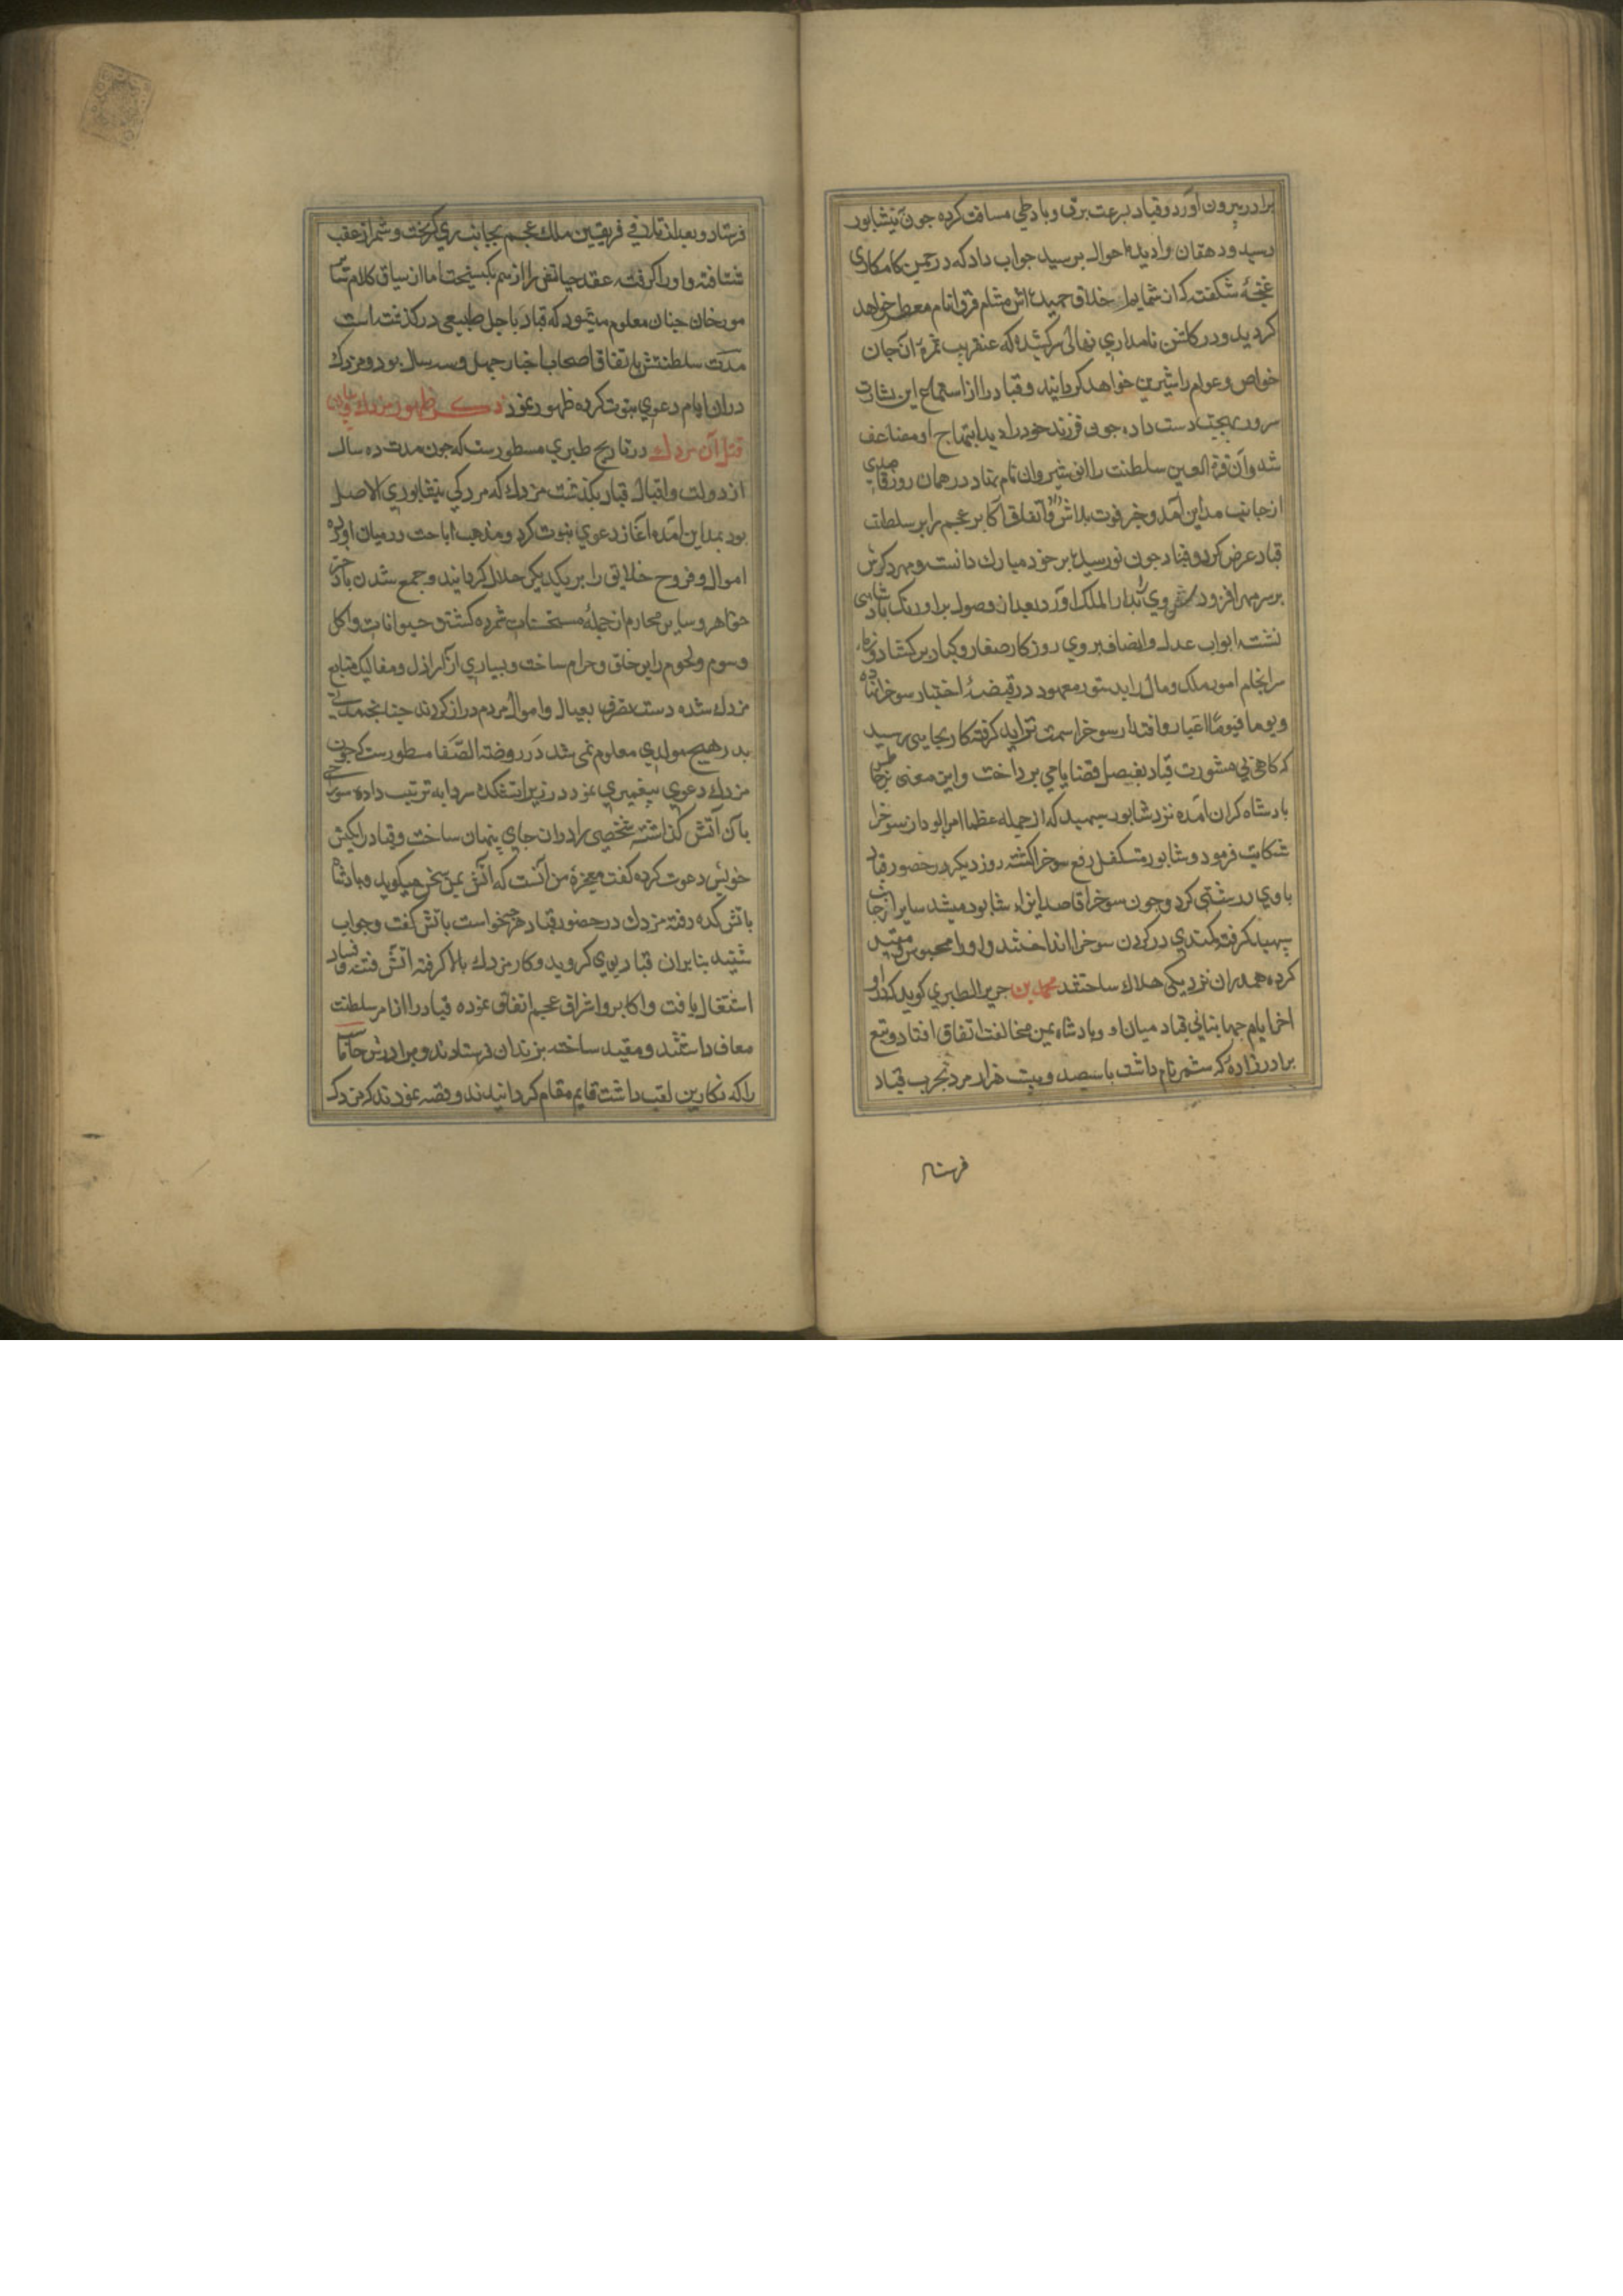 برادر بیرون آورد و قباد بسرعت برق و باد طی مسافت کرده چون نیشابور
رسید و دهقان را دید احوال پرسید جواب داد که در چمن کامکاری
غنچهٔ شکفت که از شمایم اخلاق حمیده اش مشام فرق انام معطر خواهد
کردید و در کلشن نامداری نهالی سرکشیده که عنقریب ثمرهٔ آن جان
خواص و عوام را شیرین خواهد کردانید و قباد را از استماع این بشارت
سرور و بهجت دست داده چون فرزند خود را دید ابتهاج او مضاعف
شد و آن قرة العین سلطنت را انوشیروان نام نهاد در همان روز قاصدی
از جانب مداین آمد و خبر فوت بلاش و اتفاق اکابر عجم را بر سلطنت
قباد عرض کرد و قباد چون نور سیده بر خود مبارک دانست و مهر دکرش
بر سر مهر افزود وی را بدار الملک آورد و بعد از وصول بر اورنک پادشاهی
نشسته ابواب عدل و انصاف بر روی روزکار صغار و کبار برکشاد و زمام
سرانجام امور ملک و مال را بدستور معهود در قبضهٔ اختیار سوخرا نهاده
و یوما فیوما اعتبار و اقتدار سوخرا سمت تزاید کرفته کار بجایی رسید
که کاهی بی مشورت قباد بفیصل قضایا می پرداخت و این معنی بر خاطر
پادشاه کران آمده نزد شابور سپهبد که از جمله عظما امرا بود از سوخرا
شکایت فرمود و شابور متکفل رفع سوخرا کشته روز دیکر در حضور قباد
با وی درشتی کرد و چون سوخرا قاصد ایذاء شابور میشد سایر از جانب
سپهبد کرفته کمندی در کردن سوخرا انداختند و او را محبوس و مقید
کرده همدران نزدیکی هلاک ساختند محمد بن جریر الطبری کوید که در
اخر ایام جهانبانی قباد میان او و پادشاه یمن مخالفت اتفاق افتاد و تبع
برادرزادهٔ که شمر نام داشت با سیصد و بیست هزار مرد بحرب قباد
فرستاد
فرستاد و بعد از تلاقی فریقین ملک عجم بجانب ری کریخت و شمر از عقب
شتافته و او را کرفته عقد حیاتش را از هم بکسیخت اما از سیاق کلام سایر
مورخان چنان معلوم میشود که قباد باجل طبیعی درکذشته است
مدت سلطنتش باتفاق اصحاب اخبار چهل و سه سال بود و مزدک
دران ایام دعوی نبوت کرده ظهور نمود ذکر ظهور مزدک و بیان
قتل آن مزدک در تاریخ طبری مسطورست که چون مدت ده سال
از دولت و اقبال قباد بکذشت مزدک که مردکی نیشابوری الاصل
بود بمداین آمده اغاز دعوی نبوت کرد و مذهب اباحت در میان آورده
اموال و فروج خلایق را بر یکدیکر حلال کردانید و جمع شدن با دختر
خواهر و سایر محارم از جملهٔ مستحسنات شمرده کشتن حیوانات و اکل
دسوم و لحوم را بر خلق حرام ساخت و بسیاری از اراذل و مفالیک متابع
مزدک شده دست تصرف بعیال و اموال مردم دراز کردند چنانچه مدتی
پدر هیچ مولودی معلوم نمی شد در روضة الصفا مسطورست که چون
مزدک دعوی پیغمبری نمود در زیر اتشکده سردابه ترتیب داده سوراخی
بان آتش کذاشته شخصی را دران جای پنهان ساخت و قباد را بکیش
خویش دعوت کرده کفت معجزهٔ من آنست که اتش بمن سخن میکوید و با پادشاه
باتش کده رفته مزدک در حضور قباد هرچه خواست باتش کفت و جواب
شنید بنابران قباد بوی کروید و کار مزدک بالا کرفته اتش فتنه و فساد
اشتعال یافت و اکابر و اشراف عجم اتفاق نموده قباد را از امر سلطنت
معاف داشتند و مقید ساخته بزندان فرستادند و برادرش جاماسب
را که نکارین لقب داشت قایم مقام کردانیدند و قصه نمودند که مزدک